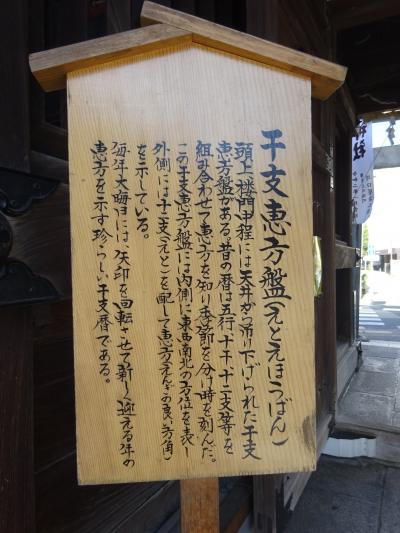 干支恵方盤(えとえほうばん)
頭上楼門中程には天井から吊り下げられた干支
恵方盤がある。昔の暦は五行、十干、十二支等を
組み合わせて恵方を知り季節を分け時を刻んだ。
この干支恵方盤には内側に東西南北の方位を表し
外側には十二支(えと)を配して恵方(えんぎの良い方角)
を示している。
毎年大晦日には、矢印を回転させて新しく迎える年の
恵方を示す珍らしい干支暦である。